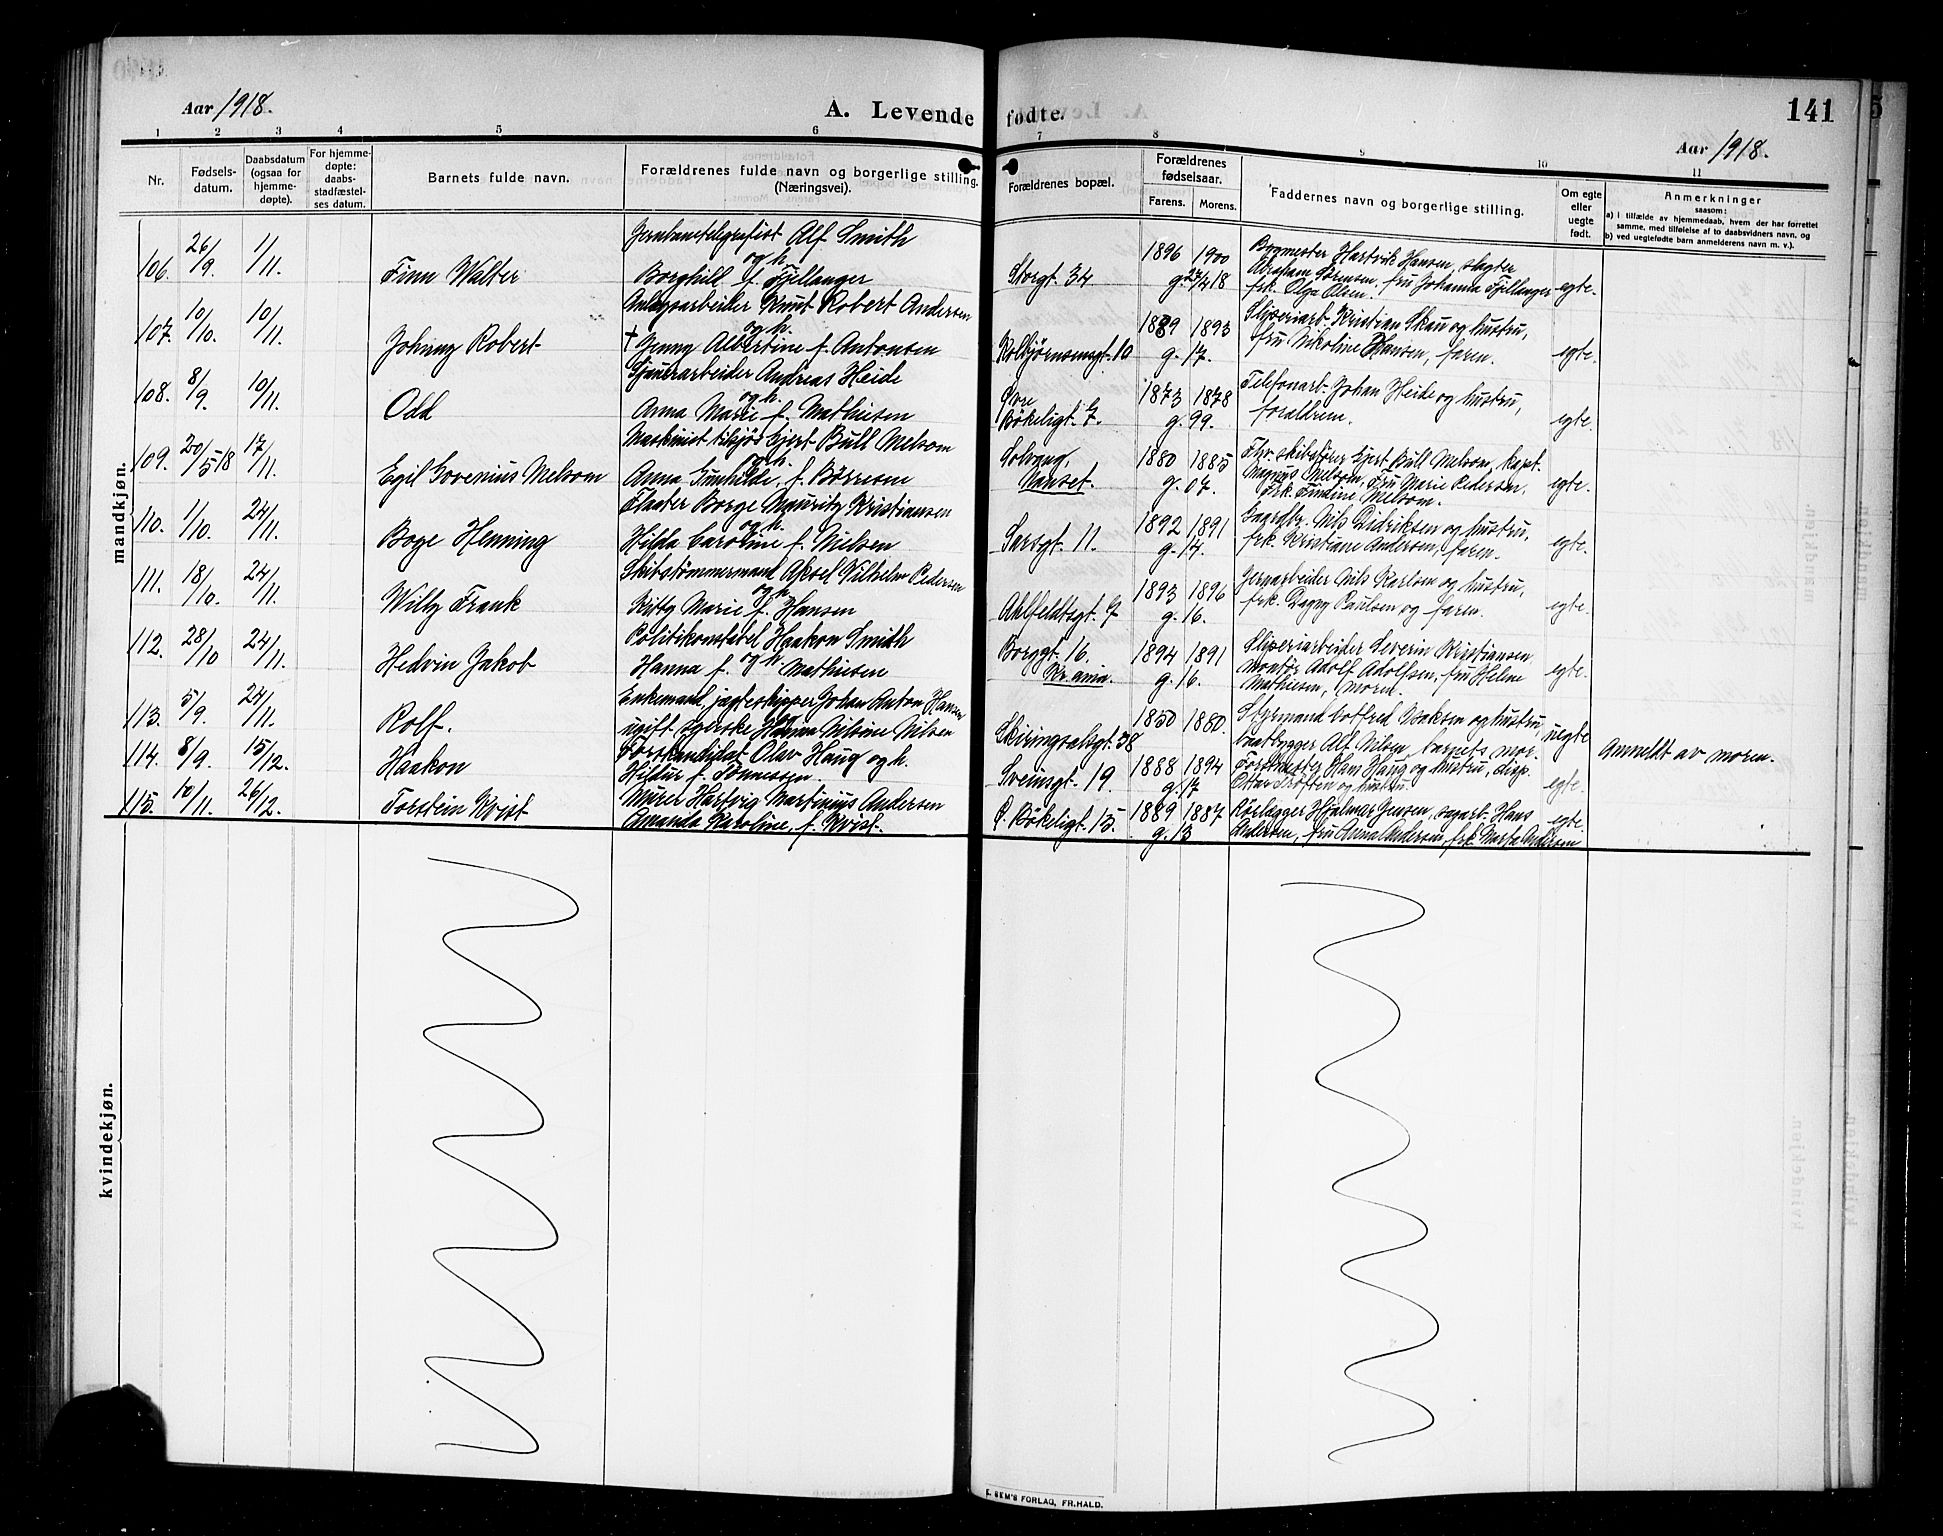 Aar 1918.
A. Levende fødte.
141
Aar 1918.
1 2 3 4 5 6 7 8 9 10 11
Nr.
Fødsels-
datum.
Daabsdatum
(ogsaa for
hjemme-
døpte).
For hjemme-
døpte:
daabs-
stadfæstel-
ses datum.
Barnets fulde navn.
Forældrenes fulde navn og borgerlige stilling.
(Næringsvei).
Forældrenes bopæl.
Forældrenes
fødselsaar.
Farens. Morens.
Faddernes navn og borgerlige stilling.
Om egte
eller
uegte
født.
Anmerkninger
saasom:
a) i tilfælde av hjemmedaab, hvem der har forrettet
samme, med tilføielse af to daabsvidners navn, og
b) ved uegtefødte barn anmelderens navn m. v.).
mandkjøn.
106. 26/9. 1/11. Finn Walter
Jernbanetelegrafist Alf Smith
og h.
Borghill f. Fjellanger
Storgt. 34
1896 1900
g. 27/4 18
Bygmester Hartvik Hansen, slagter
Abraham Sørensen, fru Johanna Fjellanger
frk. Olga Olsen.
egte.
107. 10/10. 10/11. Johnny Robert
Anlægsarbeider Knut Robert Andersen
og h.
† Jenny Albertine f. Antonsen
Kolbjørnsensgt. 10
1889 1893
g. 17.
Sliperiarb. Kristian Skau og hustru,
fru Nikoline Hansen, faren.
egte.
108. 8/9. 10/11. Odd
Sjauerarbeider Andreas Heide
og h.
Anna Marie f. Mathisen
Øvre
Bøkeligt. 7.
1873 1878
g. 99.
Telefonarb. Johan Heide og hustru,
forældrene.
egte.
109. 20/5-18 17/11. Egil Sovenius Melsom
Maskinist tilsjøs Gjert Bull Melsom
og h.
Anna Gunhilde, f. Børresen
Solvang,
Nanset.
1880 1885
g. 07.
Fhv. skibsfører Gjert Bull Melsom, kapt.
Magnus Melsom, Fru Marie Pedersen,
Frk. Findine Melsom.
egte.
110. 1/10. 24/11. Boge Henning
Flaater Borge Mauritz Kristiansen
og h.
Hilda Caroline f. Nielsen
Sarsgt. 11.
1892 1891
g. 14.
Gaardbr. Nils Didriksen og hustru,
frk. Kristiane Andersen, faren.
egte.
111. 18/10. 24/11. Willy Frank
Skibstømmermand Aksel Vilhelm Pedersen
og h.
Kitty Marie f. Hansen
Ahlfeldtsgt. 7
1893 1896
g. 16.
Jernarbeider Nils Karlsen og hustru,
frk. Dagny Paulsen og faren.
egte.
112. 28/10 24/11. Hedvin Jakob
Politikonstabel Haakon Smith
og h.
Hanna f. Mathisen
Borggt. 16.
Kr.ania.
1894 1891
g. 16.
Sliperiarbeider Severin Kristiansen
montør Adolf Adolfsen, fru Helene
Mathisen, moren.
egte.
113. 5/9. 24/11. Rolf.
Enkemand, jagteskipper Johan Anton Hansen
og
ugift syerske Hanna Nilsine Nilsen
Skiringsalsgt. 38
1850 1880.
Styrmand Gotfred Isaksen og hustru,
baatbygger Alf Nilsen, barnets mor.
uegte
Anmeldt av moren.
114. 8/9. 15/12. Haakon
Forstkandidat Olav Haug og h.
Hildur f. Tønnessen.
Sveinsgt. 19.
1888 1894
g. 17
Forstmester Hans Haug og hustru, disp.
Ottar Skoften og hustru.
egte.
115. 10/11. 26/12. Torstein Kvist
Murer Hartvig Martinius Andersen
Amanda Karoline, f. Kvist.
Ø. Bøkeligt. 15.
1889 1887
g. 13
Rørlægger Hjalmar Jensen, sagarb. Hans
Andersen, fru Anna Andersen, frk. Marta Andersen
egte.
kvindekjøn.
E. SEM'S FORLAG, FR.HALD.